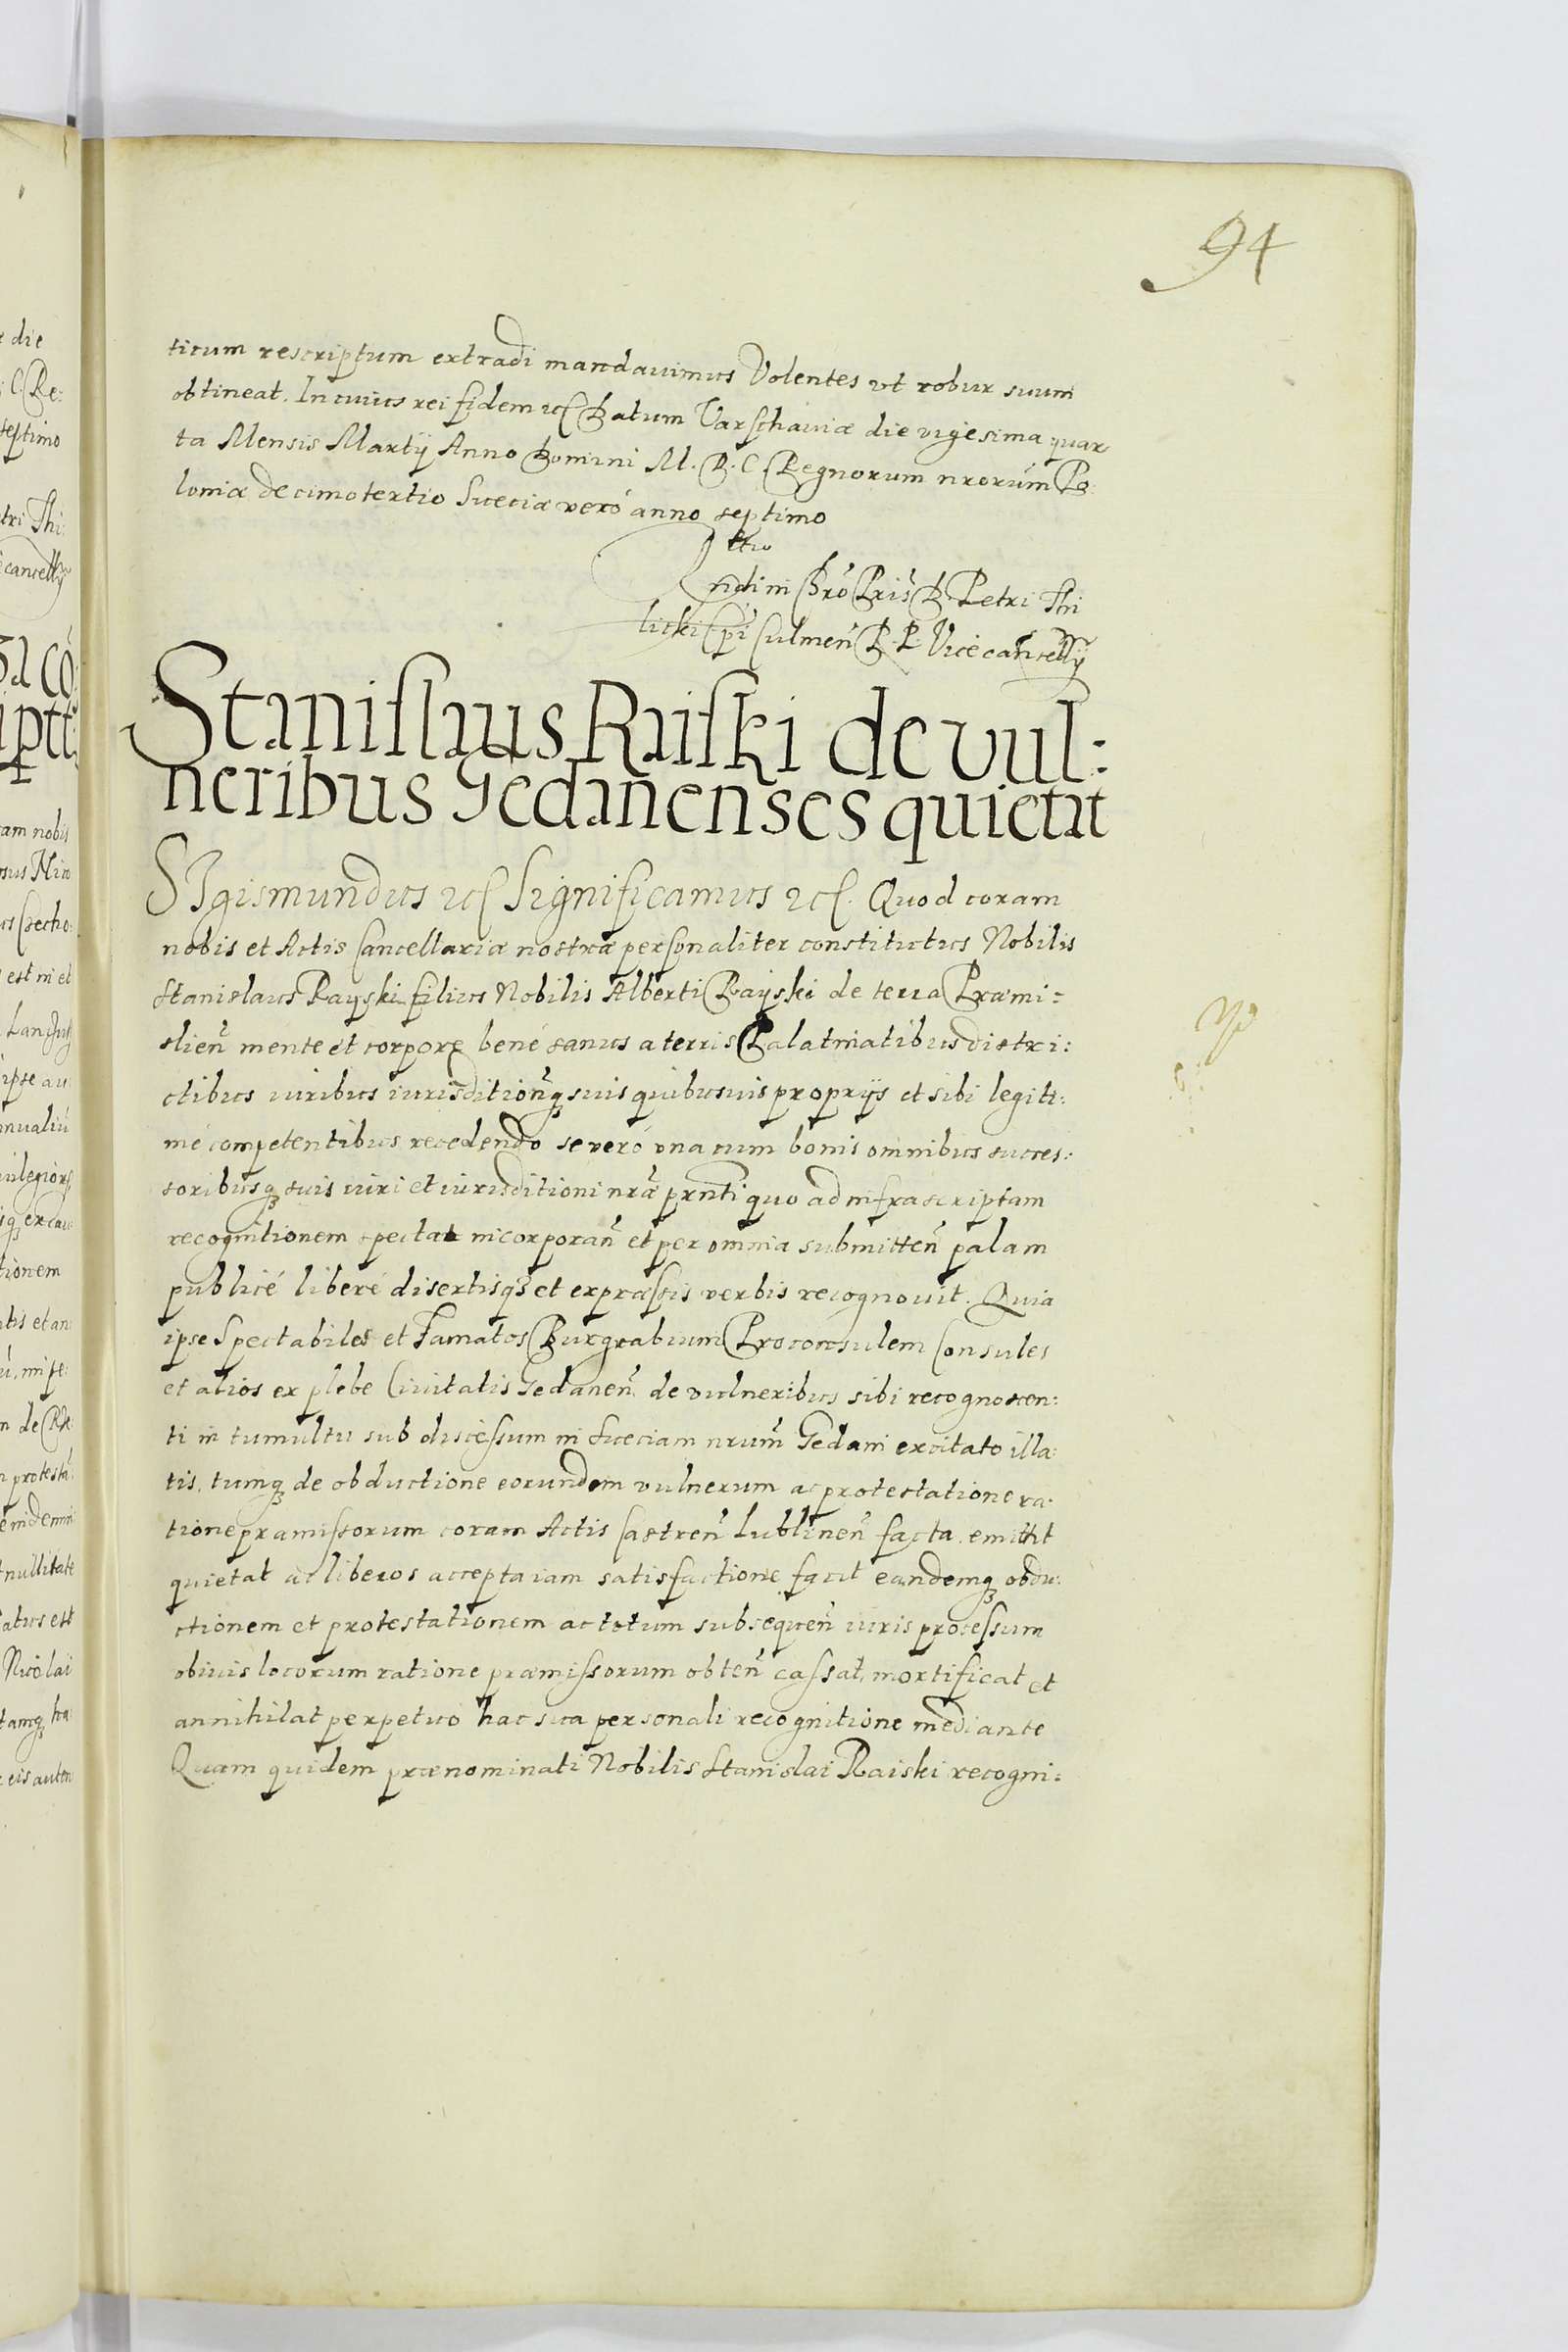 94
ticum rescriptum extradi mandauimus Volentes vt robur suum
obtineat. In cuius rei fidem etc Datum Varschauiæ die vigesima quar
ta Mensis Martij Anno Domini M. D. C. Regnorum nrorum Po:
loniæ decimotertio Sueciæ veró anno septimo
Rndi in Chrō Pris D. Petri Thi
licki Epi Culmen̄ R. P. Vicecancellij
Stanislaus Raiski de vul:
neribus Gedanenses quietat
SIgismundus etc Significamus etc. Quod coram
nobis et Actis Cancellariæ nostræ personaliter constitutus Nobilis
Stanislaus Rayski filius Nobilis Alberti Rayski de terra Præmi:
slien̄ mente et corpore bené sanus a terris Palatinatibus districti:
ctibus iuribus iurisdition̄q3 suis quibusuis proprijs et sibi legiti:
mé competentibus recedendo se veró vna cum bonis omnibus succes:
soribusq3 suis iuri et iurisditioni nræ prnti quo ad infrascriptam
recognitionem spectat incorporan̄ et per omnia submitten̄ palam
publicé liberé disertisq3 et expræssis verbis recognouit. Quia
ipse Spectabiles et Famatos Burgrabium Proconsulem Consules
et alios ex plebe Ciuitatis Gedanen̄ de vulneribus sibi recognoscen:
ti in tumultu sub discessum in Sueciam nrum̄ Gedani excitato illa:
tis, tumq3 de obductione eorundem vulnerum ac protestatione ra:
tione præmissorum coram Actis Castren̄ Lublinen̄ facta, emittit
quietat ac liberos accepta iam satisfactione facit eandemq3 obdu:
ctionem et protestationem ac totum subsequen̄ iuris processum
obiuis locorum ratione præmissorum obten̄ cassat, mortificat et
annihilat perpetuo hac sua personali recognitione mediante
Quam quidem prænominati Nobilis Stanislai Raiski recogni: